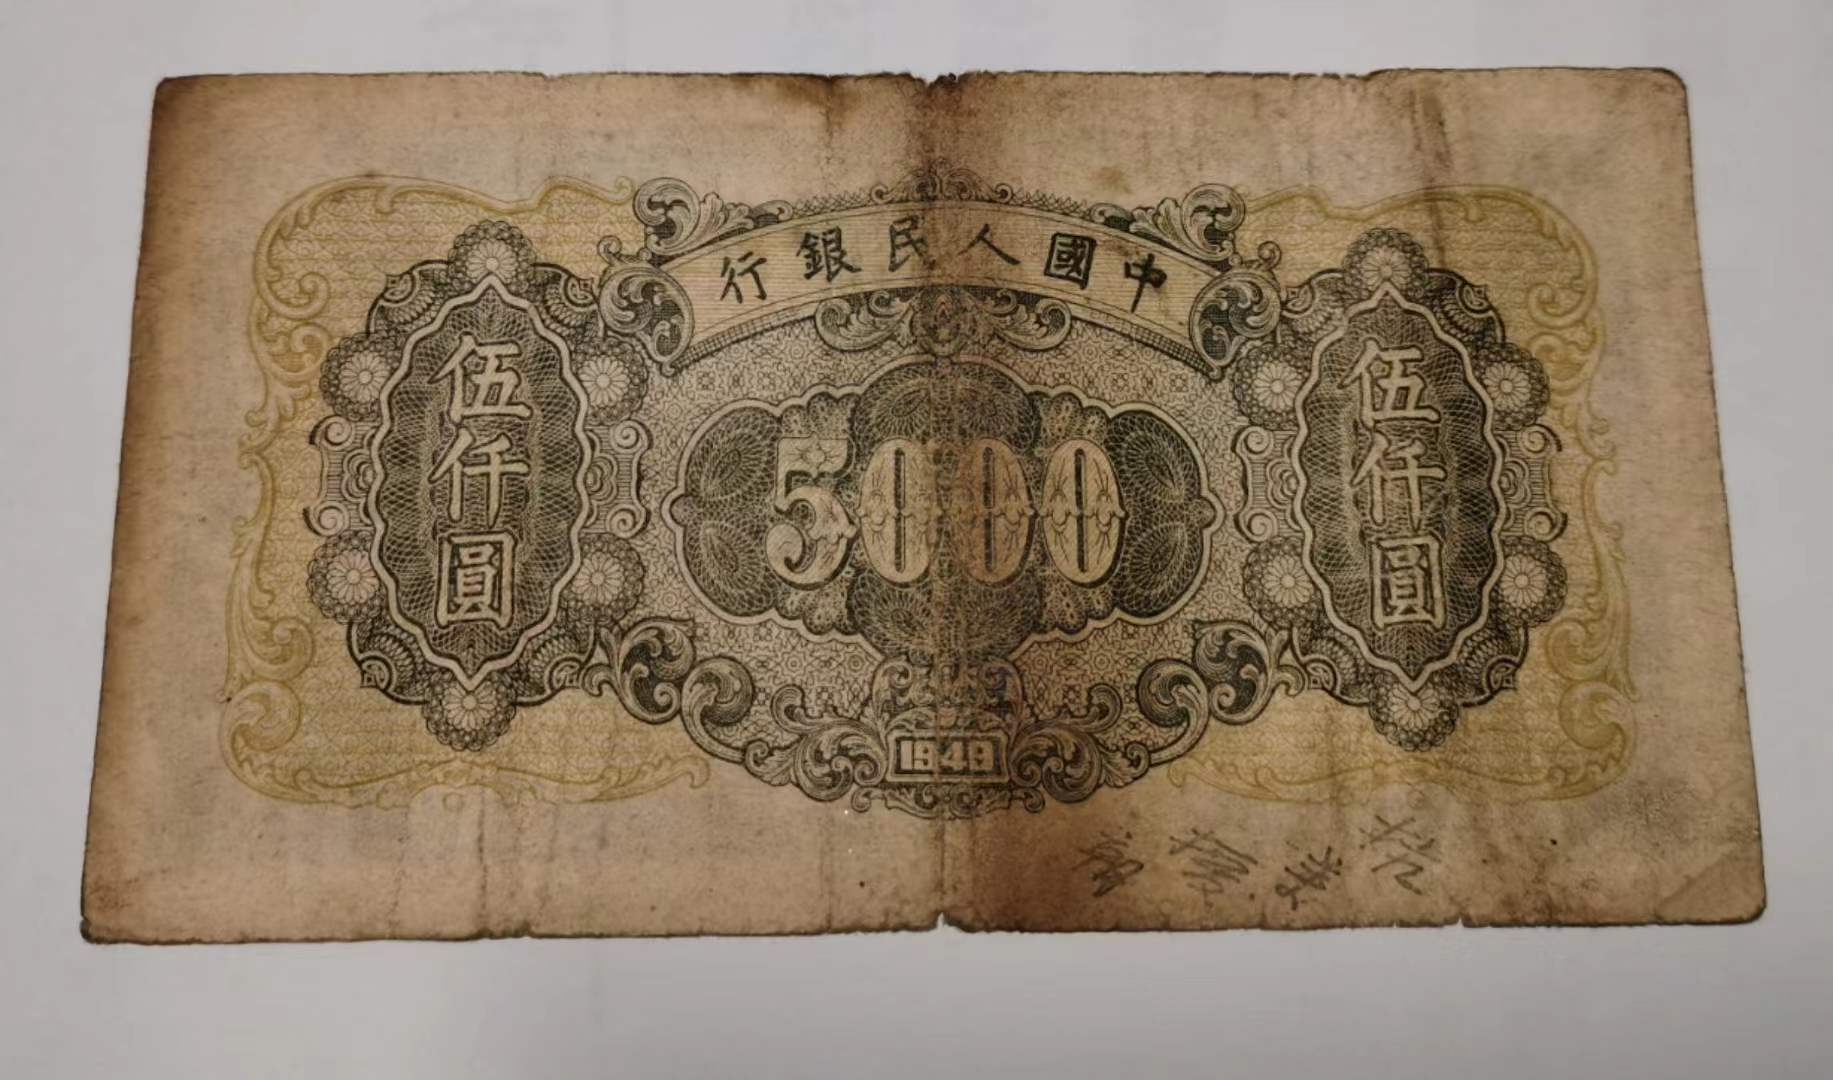 中國人民銀行
伍仟圓
5000
伍仟圓
1949